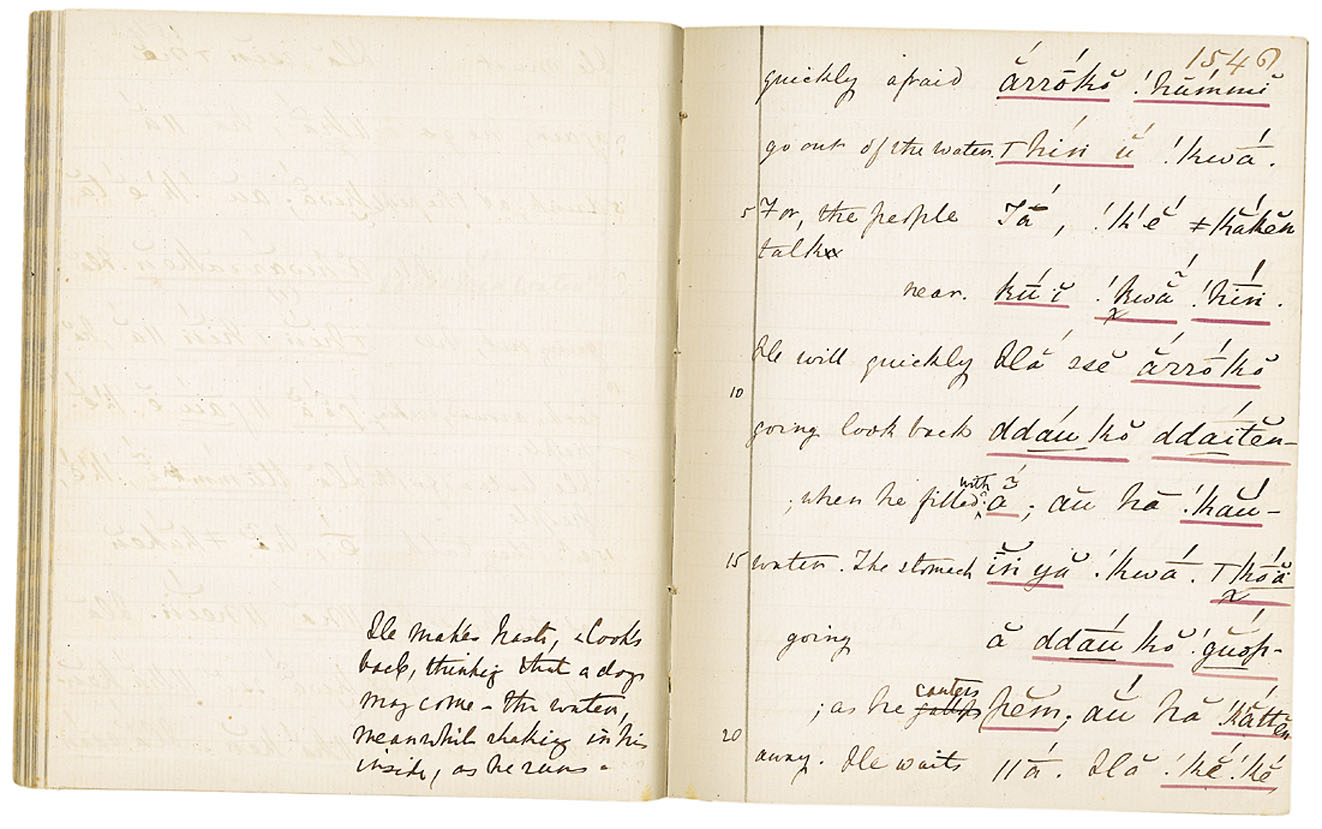 He makes haste, & looks
back, thinking that a dog
may come – the water,
meanwhile shaking in his
inside, as he runs.
1546
quickly afraid ărrókŏ !hŭmmĭ
go out of the water. !kwā́.
5 For, the people Tā́, !k'ĕ́ ǂkăkĕn
talk
near. kúĭ !kwắ !hiń.
He will quickly Hā́ ssĕ ărrókŏ
10
going look back ddáu kŏ ddáitĕn-
; when he filled with ā̃́; āu hā !kāŭ-
15 water. The stomach ĭń yā̆ !kwā́.
going ā ddáu kŏ !gŭóp-
; as he canters hĕm; āu hā !kắttĕn
20
away. He waits ǁā́. Hā́ !kĕ́!kĕ́,